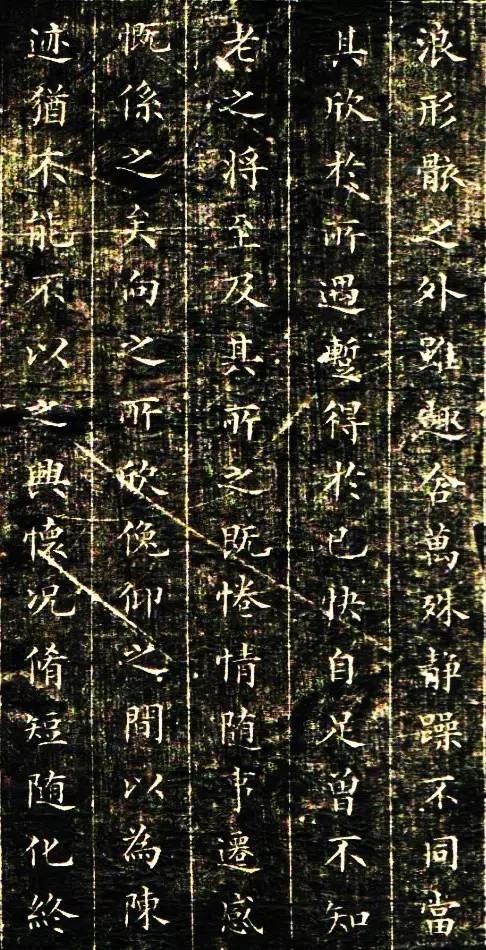 浪形骸之外雖趣舍萬殊静躁不同當
其欣於所遇蹔得於己快自足曽不知
老之将至及其所之既惓情随事遷感
慨係之矣向之所欣俛仰之間以為陳
迹猶不能不以之興懷况脩短随化終